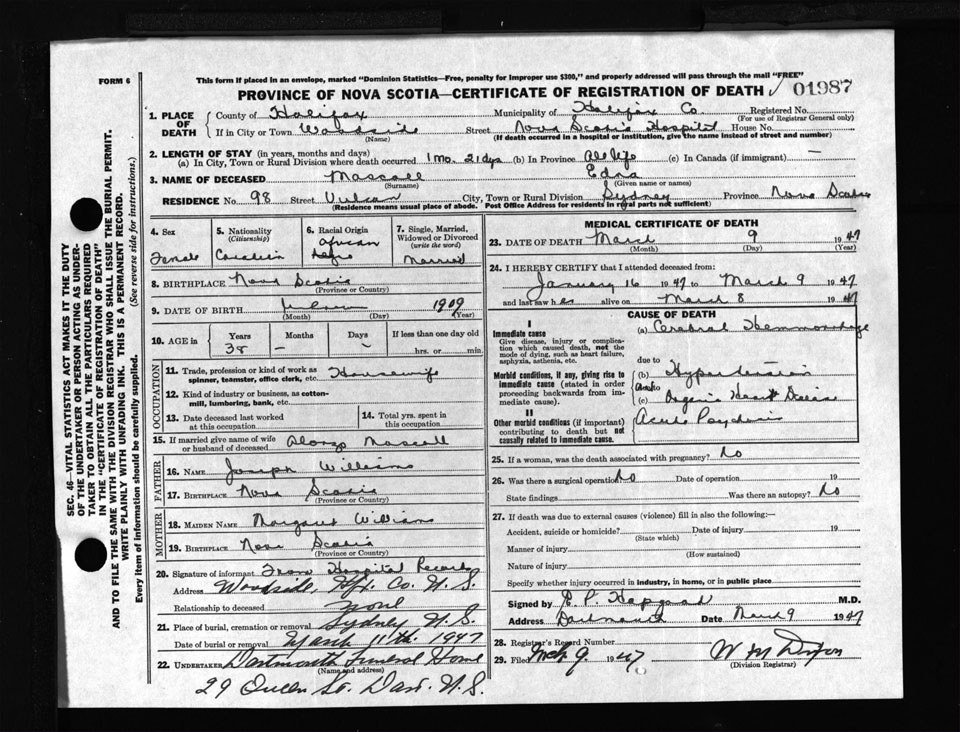 FORM 6
This form if placed in an envelope, marked "Dominion Statistics—Free, penalty for improper use $300," and properly addressed will pass through the mail "FREE"
PROVINCE OF NOVA SCOTIA—CERTIFICATE OF REGISTRATION OF DEATH 01987
1. PLACE OF DEATH County of Halifax Municipality of Halifax Co. Registered No.
(For use of Registrar General only)
If in City or Town Woodside Street Nova Scotia Hospital House No.
(Name) (If death occurred in a hospital or institution, give the name instead of street and number)
2. LENGTH OF STAY (in years, months and days)
(a) In City, Town or Rural Division where death occurred 1 mo. 21 dys (b) In Province All life (c) In Canada (if immigrant) —
3. NAME OF DECEASED Mascoll Edna
(Surname) (Given name or names)
RESIDENCE No. 98 Street Vulcan City, Town or Rural Division Sydney Province Nova Scotia
(Residence means usual place of abode. Post Office Address for residents in rural parts not sufficient)
4. Sex Female
5. Nationality (Citizenship) Canadian
6. Racial Origin African Negro
7. Single, Married, Widowed or Divorced (write the word) Married
8. BIRTHPLACE Nova Scotia
(Province or Country)
9. DATE OF BIRTH 1909
(Month) (Day) (Year)
10. AGE in Years Months Days If less than one day old
38 - - hrs. or min.
OCCUPATION
11. Trade, profession or kind of work as spinner, teamster, office clerk, etc. Housewife
12. Kind of industry or business, as cotton-mill, lumbering, bank, etc.
13. Date deceased last worked at this occupation
14. Total yrs. spent in this occupation
15. If married give name of wife or husband of deceased Alonzo Mascoll
FATHER
16. NAME Joseph Williams
17. BIRTHPLACE Nova Scotia
(Province or Country)
MOTHER
18. MAIDEN NAME Margaret Williams
19. BIRTHPLACE Nova Scotia
(Province or Country)
20. Signature of informant From Hospital Records
Address Woodside, Hfx. Co. N.S.
Relationship to deceased None
21. Place of burial, cremation or removal Sydney N.S.
Date of burial or removal March 11th. 1947
22. UNDERTAKER Dartmouth Funeral Home
(Name and address)
29 Queen St. Dart. N.S.
MEDICAL CERTIFICATE OF DEATH
23. DATE OF DEATH March 9 1947
(Month) (Day) (Year)
24. I HEREBY CERTIFY that I attended deceased from:
January 16 1947 to March 9 1947
and last saw her alive on March 8 1947
CAUSE OF DEATH
I
Immediate cause
Give disease, injury or complication which caused death, not the mode of dying, such as heart failure, asphyxia, asthenia, etc.
(a) Cerebral Hemmorrhage
due to
Morbid conditions, if any, giving rise to immediate cause (stated in order proceeding backwards from immediate cause).
(b) Hypertension
(c) Organic Heart Disease
II
Other morbid conditions (if important) contributing to death but not causally related to immediate cause.
Acute Psychosis
25. If a woman, was the death associated with pregnancy? No
26. Was there a surgical operation No Date of operation 19
State findings Was there an autopsy? No
27. If death was due to external causes (violence) fill in also the following:—
Accident, suicide or homicide? Date of injury 19
(State which)
Manner of injury
(How sustained)
Nature of injury
Specify whether injury occurred in industry, in home, or in public place
Signed by E. P. M.D.
Address Dartmouth Date March 9 1947
28. Registrar's Record Number
29. Filed Mch 9 1947 W M Dixon
(Division Registrar)
SEC. 46—VITAL STATISTICS ACT MAKES IT THE DUTY
OF THE UNDERTAKER OR PERSON ACTING AS UNDER-
TAKER TO OBTAIN ALL THE PARTICULARS REQUIRED
IN THE "CERTIFICATE OF REGISTRATION OF DEATH"
AND TO FILE THE SAME WITH THE DIVISION REGISTRAR WHO SHALL ISSUE THE BURIAL PERMIT.
WRITE PLAINLY WITH UNFADING INK. THIS IS A PERMANENT RECORD.
Every item of information should be carefully supplied. (See reverse side for instructions.)